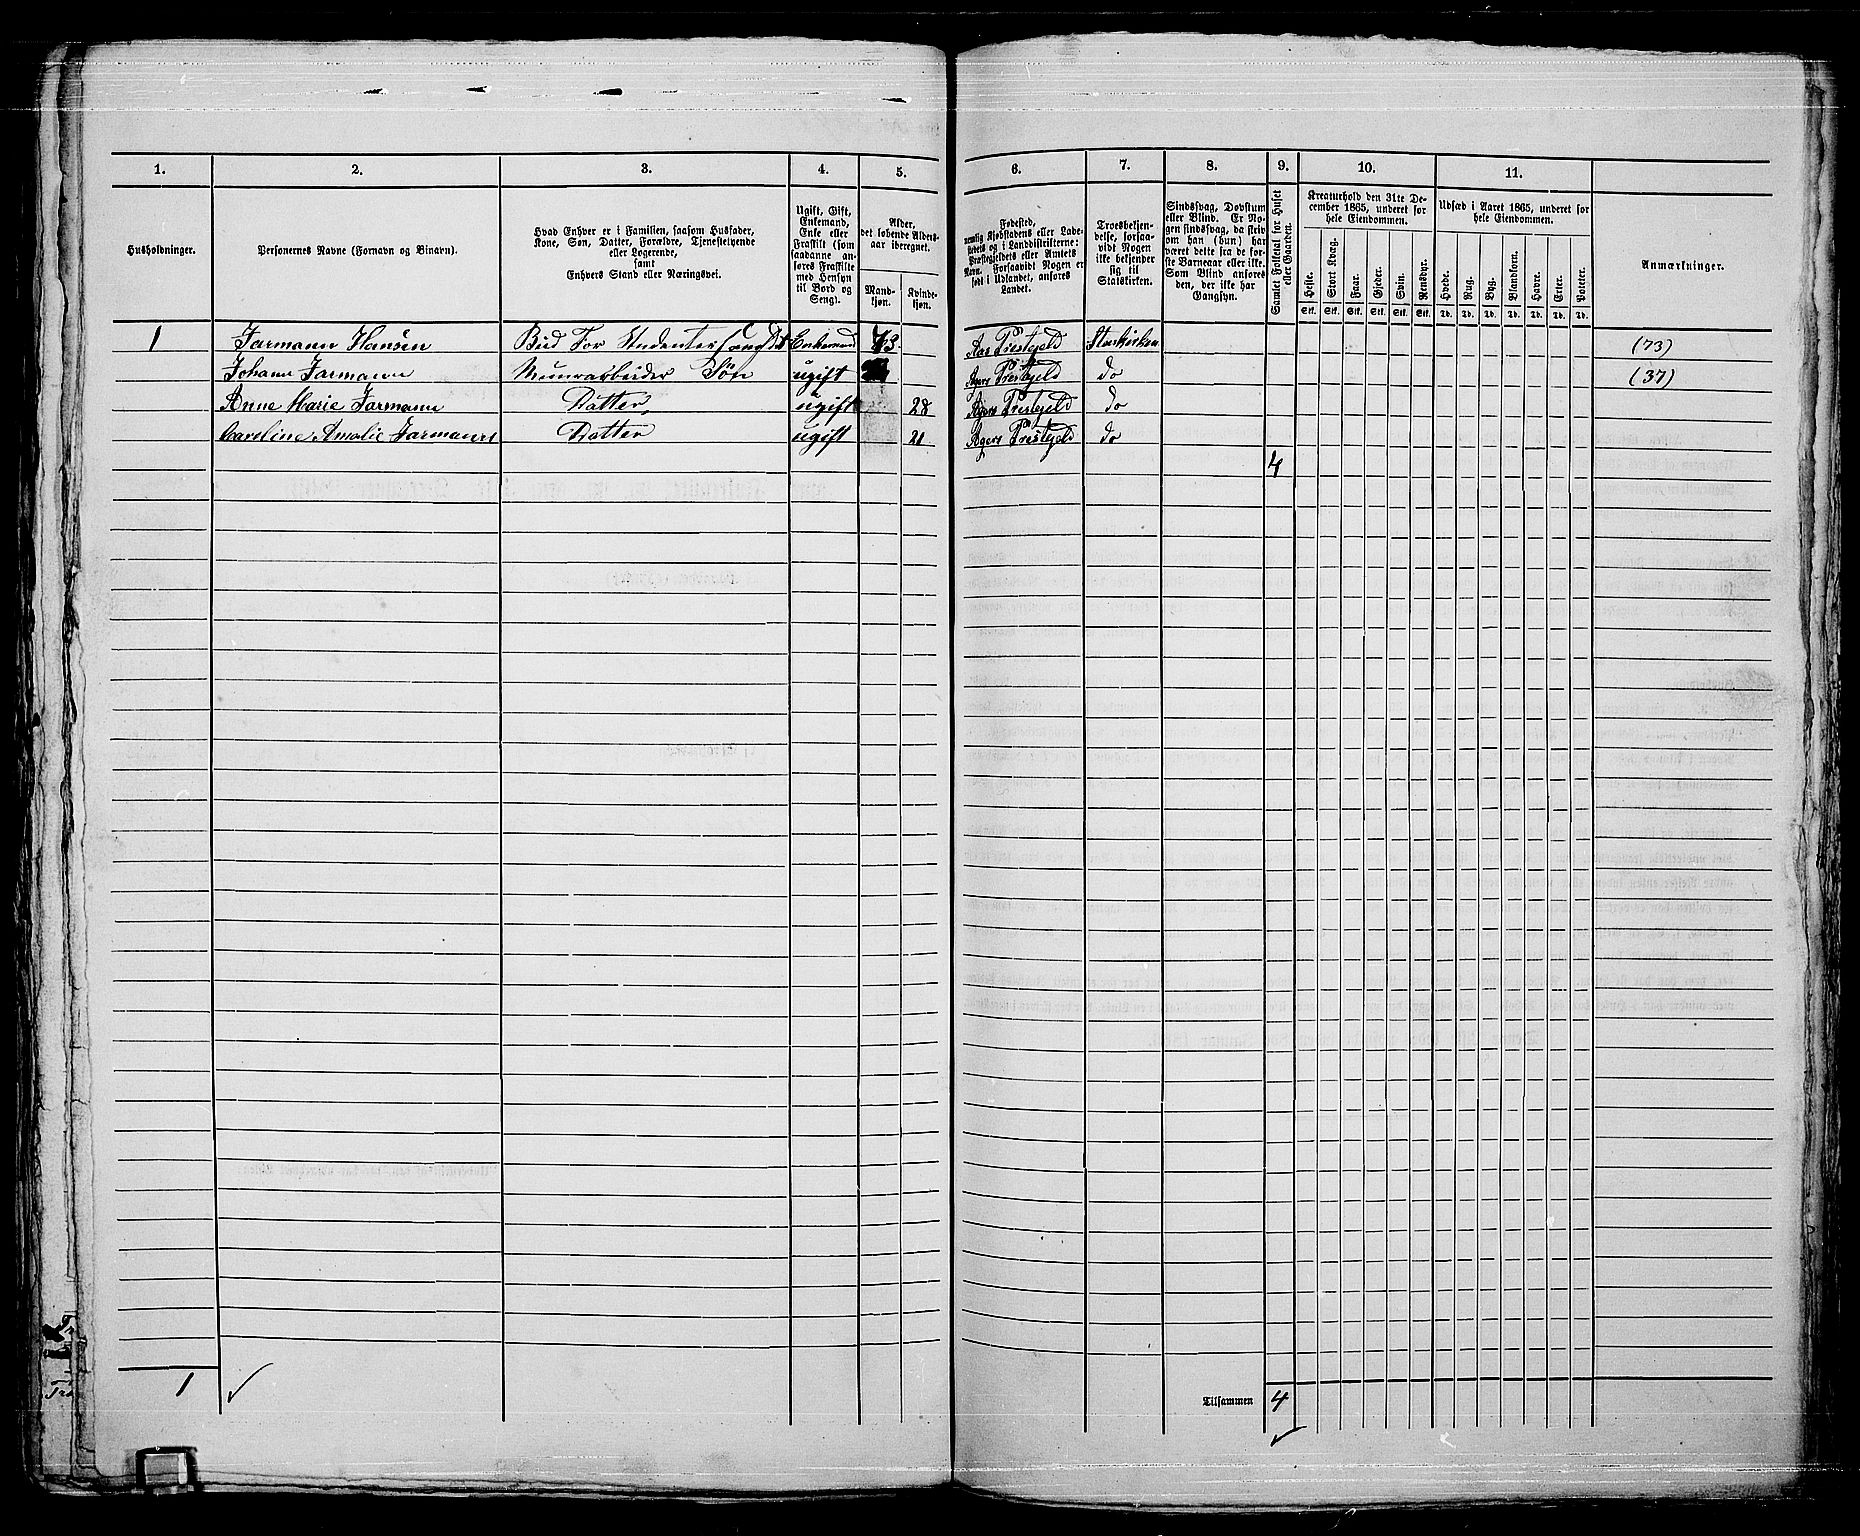 1. 2. 3. 4. 5. 6. 7. 8. 9. 10. 11.
Husholdninger.
Personernes Navne (Fornavn og Binavn).
Hvad Enhver er i Familien, saasom Husfader,
Kone, Søn, Datter, Forældre, Tjenestetyende
eller Logerende,
samt
Enhvers Stand eller Næringsvei.
Ugift, Gift,
Enkemand,
Enke eller
Fraskilt (som
saadanne an-
føres Fraskilte
med Hensyn
til Bord og
Seng).
Alder,
det løbende Alders-
aar iberegnet.
Mand-
kjøn.
Kvinde-
kjøn.
Fødested,
nemlig Kjøbstadens eller Lade-
stedets og i Landdistrikterne:
Præstegjeldets eller Amtets
Navn. Forsaavidt Nogen er
født i Udlandet, anføres
Landet.
Troesbekjen-
delse, forsaa-
vidt Nogen
ikke bekjender
sig til
Statskirken.
Sindssvag, Døvstum
eller Blind. Er No-
gen sindssvag, da skriv
om han (hun) har
været dette fra de før-
ste Barneaar eller ikke.
Som Blind anføres
den, der ikke har
Gangsyn.
Samlet Folketal for Huset
eller Gaarden.
Kreaturhold den 31te De-
cember 1865, underet for
hele Eiendommen.
Heste. Stort Kvæg. Faar. Gjeder. Svin. Rensdyr.
Stk. Stk. Stk. Stk. Stk. Stk.
Udsæd i Aaret 1865, underet for
hele Eiendommen.
Hvede. Rug. Byg. Blandkorn. Havre. Erter. Poteter.
Td. Td. Td. Td. Td. Td. Td.
Anmærkninger.
1 Jarmann Hansen Bud For Studentersamfdt Enkemand 73 Aas Prestejeld Statskirken (73)
Johann Jarmann Muurarbeider Søn ugift Agers Prestejeld do (37)
Anne Marie Jarmann Datter ugift 28 Agers Prestejeld do
Caroline Amalie Jarmann Datter ugift 21 Agers Prestejeld do
4
1
Tilsammen 4